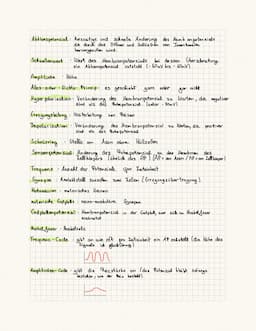 Aktionspotenzial: Kurzzeitige und schnelle Änderung des Membranpotenzials
die durch das Öffnen und Schließen von Ionenkanälen
hervorgerufen wird.
Schwellenwert: Wert des Membranpotenzials bei dessen Überschreitung
ein Aktionspotenzial entsteht
Amplitude: Höhe
Alles-oder-Nichts-Prinzip: es geschieht ganz oder gar nicht
Hyperpolarisation: Veränderung des Membranpotenzials zu Werten, die negativer
sind als das Ruhepotenzial
Erregungsleitung: Weiterleitung von Reizen
Depolarisation: Veränderung des Membranpotenzials zu Werten, die positiver
sind als das Ruhepotenzial
Schnürring: Stelle am Axon ohne Hüllzellen
Sensorpotenzial: Änderung des Ruhepotenzials an der Membran des
Frequenz: Anzahl der Potenziale pro Zeiteinheit
Synapse: Kontaktstelle zwischen zwei Zellen (Erregungsübertragung)
motorische Endplatte: neuro-muskuläre Synapse
Endplattenpotenzial: Membranpotenzial in der Endplatte
Frequenz-Code: gibt an wie oft pro Zeiteinheit ein AP entsteht (die Höhe des
Signals ist gleichbleibend)
Amplituden-Code: gibt die Reizstärke an (das Potenzial bleibt solange
bestehen, wie der Reiz besteht)